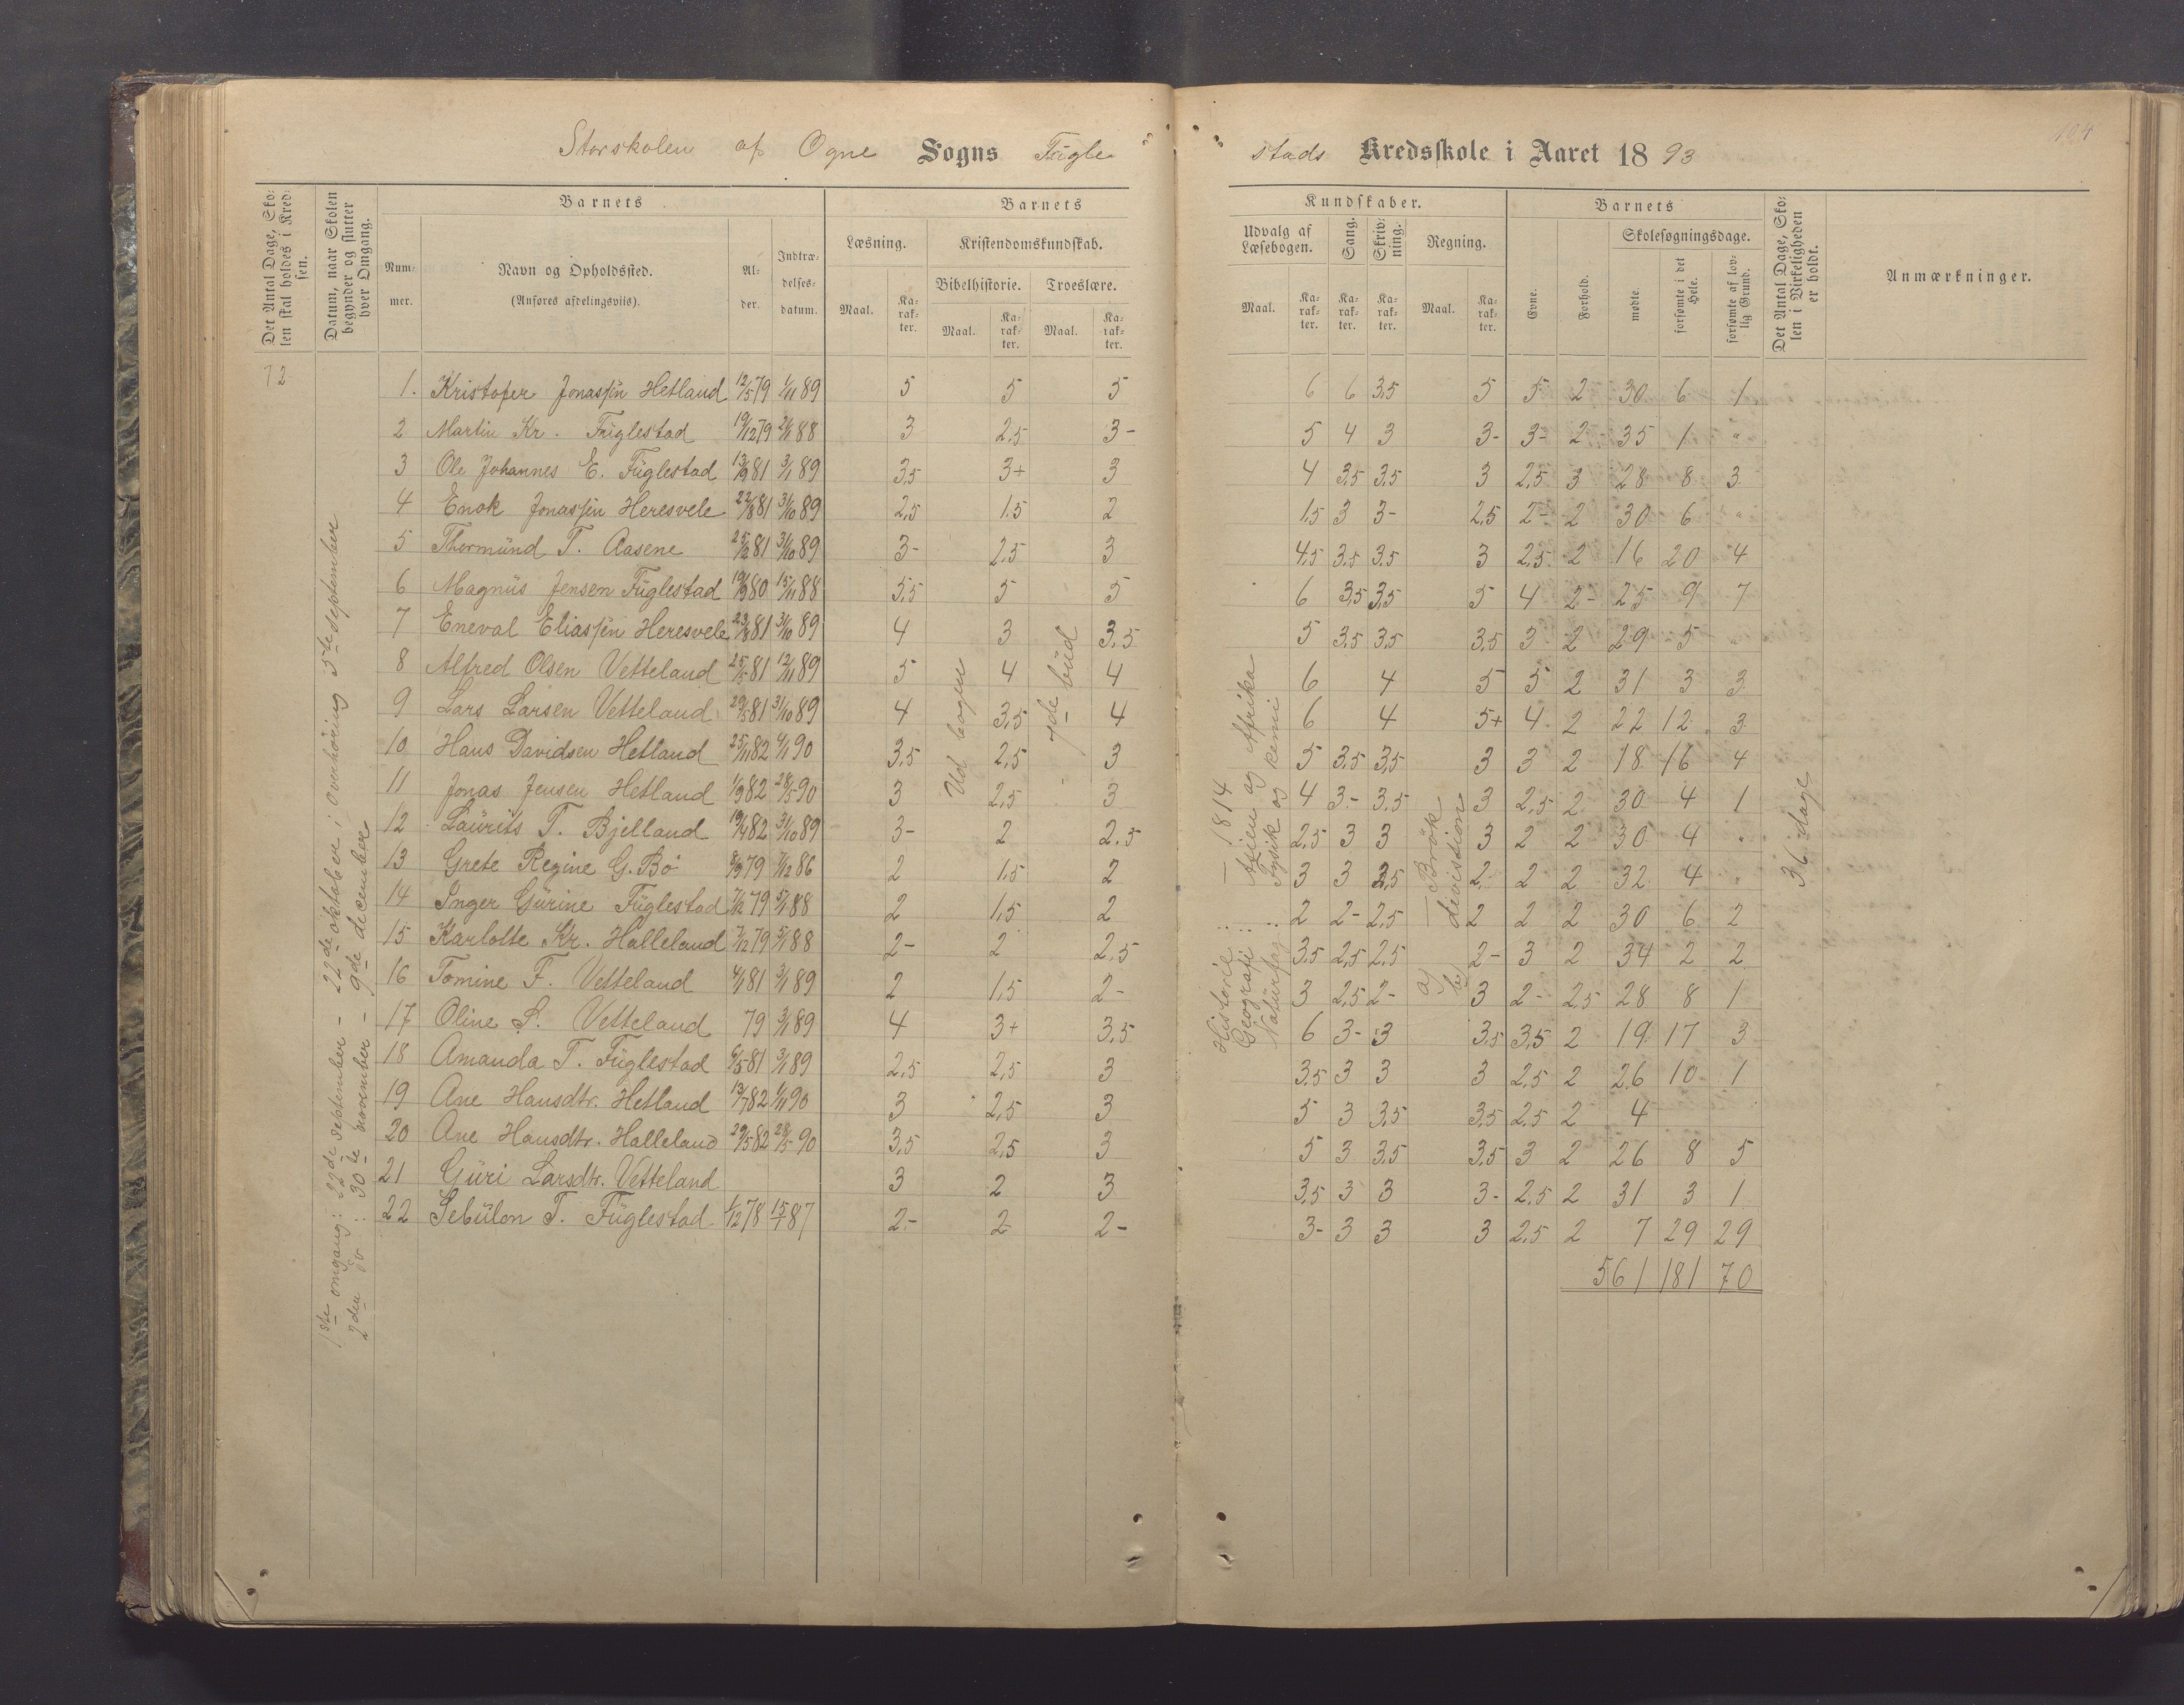 Storskolen af Ogne Sogns Fügle=
stads Kredsskole i Aaret 1893
104
Det Antal Dage, Skolen skal holdes i Kredsen.
Datum, naar Skolen begynder og slutter hver Omgang.
Barnets
Nummer.
Navn og Opholdssted.
(Anføres afdelingsviis).
Alder.
Indtrædelsesdatum.
Barnets
Læsning.
Kristendomskundskab.
Bibelhistorie.
Troeslære.
Maal.
Karakter.
Maal.
Karakter.
Maal.
Karakter.
Kundskaber.
Udvalg af Læsebogen.
Sang.
Skrivning.
Regning.
Maal.
Karakter.
Karakter.
Karakter.
Maal.
Karakter.
Barnets
Evne.
Forhold.
Skolesøgningsdage.
mødte.
forsømte i det Hele.
forsømte af lovlig Grund.
Det Antal Dage, Skolen i Virkeligheden er holdt.
Anmærkninger.
72
1ste omgang: 22de september - 22de oktober i overhøring 5te september
2den do : 30te november - 9de december
Ud bogen
7de bud
Historie : - 1814
Geografi : Asien og Afrika
Naturfag : Fysik og kemi
a) - Brök
b) devistion
36 dage
1. Kristofer Jonassen Hetland 12/5 79 1/11 89 5 5 5 6 6 3,5 5 5 2 30 6 1
2 Martin Kr. Füglestad 19/12 79 2/1 88 3 2,5 3- 5 4 3 3- 3- 2 35 1 "
3 Ole Johannes E. Füglestad 13/9 81 3/1 89 3,5 3+ 3 4 3,5 3,5 3 2,5 3 28 8 3
4 Enok Jonassen Heresvele 22/8 81 31/10 89 2,5 1,5 2 1,5 3 3- 2,5 2- 2 30 6 "
5 Thormünd T. Aasene 25/12 81 31/10 89 3- 2,5 3 4,5 3,5 3,5 3 2,5 2 16 20 4
6 Magnüs Jensen Füglestad 19/9 80 15/11 88 5,5 5 5 6 3,5 3,5 5 4 2- 25 9 7
7 Eneval Eliassen Heresvele 23/8 81 31/10 89 4 3 3,5 5 3,5 3,5 3,5 3 2 29 5 "
8 Alfred Olsen Vetteland 25/5 81 12/11 89 5 4 4 6 4 5 5 2 31 3 3
9 Lars Larsen Vetteland 29/5 81 31/10 89 4 3,5 4 6 4 5+ 4 2 22 12 3
10 Hans Davidsen Hetland 25/11 82 4/11 90 3,5 2,5 3 5 3,5 3,5 3 3 2 18 16 4
11 Jonas Jensen Hetland 1/9 82 28/5 90 3 2,5 3 4 3- 3,5 3 2,5 2 30 4 1
12 Laürits T. Bjelland 19/4 82 31/10 89 3- 2 2.5 2,5 3 3 3 2 2 30 4 "
13 Grete Regine G. Bö 8/9 79 7/12 86 2 1,5 2 3 3 3,5 2- 2 2 32 4 "
14 Inger Gürine Füglestad 7/12 79 5/1 88 2 1,5 2 2 2- 2,5 2 2 2 30 6 2
15 Karlotte Kr. Halleland 7/12 79 5/1 88 2- 2 2,5 3,5 2,5 2,5 2- 3 2 34 2 2
16 Tomine F. Vetteland 4/1 81 3/1 89 2 1,5 2- 3 2,5 2- 3 2- 2,5 28 8 1
17 Oline S. Vetteland 79 3/1 89 4 3+ 3,5 6 3- 3 3,5 3,5 2 19 17 3
18 Amanda T. Füglestad 6/5 81 3/1 89 2,5 2,5 3 3,5 3 3 3 2,5 2 26 10 1
19 Ane Hansdtr. Hetland 13/7 82 1/11 90 3 2,5 3 5 3 3,5 3,5 2,5 2 4
20 Ane Hansdtr. Halleland 29/5 82 28/5 90 3,5 2,5 3 5 3 3,5 3,5 3 2 26 8 5
21 Güri Larsdtr. Vetteland 3 2 3 3,5 3 3 3- 2,5 2 31 3 1
22 Sebülon T. Füglestad 1/12 78 15/1 87 2- 2 2- 3- 3 3 3 2,5 2 7 29 29
561 181 70